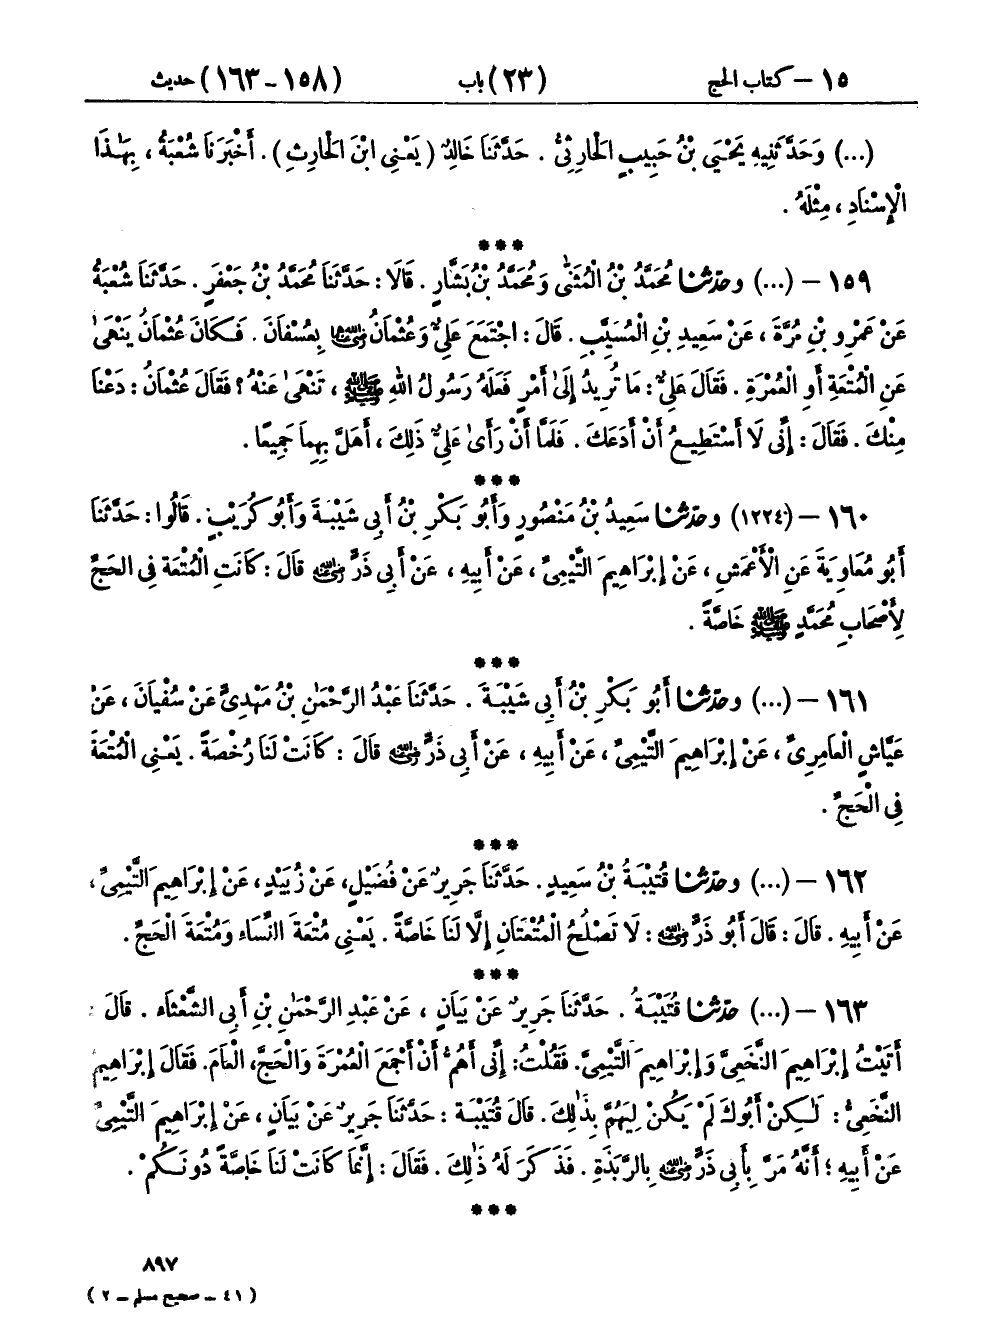 ١٥ – كتاب الحج (٢٣) باب (١٥٨ – ١٦٣) حديث
(...) وَحَدَّثَنِيهِ يَحْيَى بْنُ حَبِيبٍ الْحَارِثِيُّ . حَدَّثَنَا خَالِدٌ ( يَعْنِي ابْنَ الْحَارِثِ ) . أَخْبَرَنَا شُعْبَةُ ، بِهٰذَا
الْإِسْنَادِ ، مِثْلَهُ .
***
١٥٩ – (...) وحَدَّثَنَا مُحَمَّدُ بْنُ الْمُثَنَّى وَمُحَمَّدُ بْنُ بَشَّارٍ . قَالَا : حَدَّثَنَا مُحَمَّدُ بْنُ جَعْفَرٍ . حَدَّثَنَا شُعْبَةُ
عَنْ عَمْرِو بْنِ مُرَّةَ ، عَنْ سَعِيدِ بْنِ الْمُسَيَّبِ . قَالَ : اجْتَمَعَ عَلِيٌّ وَعُثْمَانُ رضي الله عنهما بِعُسْفَانَ . فَكَانَ عُثْمَانُ يَنْهَىٰ
عَنِ الْمُتْعَةِ أَوِ الْعُمْرَةِ . فَقَالَ عَلِيٌّ : مَا تُرِيدُ إِلَىٰ أَمْرٍ فَعَلَهُ رَسُولُ اللهِ ﷺ ، تَنْهَىٰ عَنْهُ ؟ فَقَالَ عُثْمَانُ : دَعْنَا
مِنْكَ . فَقَالَ : إِنِّي لَا أَسْتَطِيعُ أَنْ أَدَعَكَ . فَلَمَّا أَنْ رَأَىٰ عَلِيٌّ ذٰلِكَ ، أَهَلَّ بِهِمَا جَمِيعًا .
***
١٦٠ – (١٢٢٤) وحَدَّثَنَا سَعِيدُ بْنُ مَنْصُورٍ وَأَبُو بَكْرِ بْنُ أَبِي شَيْبَةَ وَأَبُو كُرَيْبٍ . قَالُوا : حَدَّثَنَا
أَبُو مُعَاوِيَةَ عَنِ الْأَعْمَشِ ، عَنْ إِبْرَاهِيمَ التَّيْمِيِّ ، عَنْ أَبِيهِ ، عَنْ أَبِي ذَرٍّ رضي الله عنه قَالَ : كَانَتِ الْمُتْعَةُ فِي الْحَجِّ
لِأَصْحَابِ مُحَمَّدٍ ﷺ خَاصَّةً .
***
١٦١ – (...) وحَدَّثَنَا أَبُو بَكْرِ بْنُ أَبِي شَيْبَةَ . حَدَّثَنَا عَبْدُ الرَّحْمٰنِ بْنُ مَهْدِيٍّ عَنْ سُفْيَانَ ، عَنْ
عَيَّاشٍ الْعَامِرِيِّ ، عَنْ إِبْرَاهِيمَ التَّيْمِيِّ ، عَنْ أَبِيهِ ، عَنْ أَبِي ذَرٍّ رضي الله عنه قَالَ : كَانَتْ لَنَا رُخْصَةً . يَعْنِي الْمُتْعَةَ
فِي الْحَجِّ .
***
١٦٢ – (...) وحَدَّثَنَا قُتَيْبَةُ بْنُ سَعِيدٍ . حَدَّثَنَا جَرِيرٌ عَنْ فُضَيْلٍ ، عَنْ زُبَيْدٍ ، عَنْ إِبْرَاهِيمَ التَّيْمِيِّ ،
عَنْ أَبِيهِ . قَالَ : قَالَ أَبُو ذَرٍّ رضي الله عنه : لَا تَصْلُحُ الْمُتْعَتَانِ إِلَّا لَنَا خَاصَّةً . يَعْنِي مُتْعَةَ النِّسَاءِ وَمُتْعَةَ الْحَجِّ .
***
١٦٣ – (...) حَدَّثَنَا قُتَيْبَةُ . حَدَّثَنَا جَرِيرٌ عَنْ بَيَانٍ ، عَنْ عَبْدِ الرَّحْمٰنِ بْنِ أَبِي الشَّعْثَاءِ . قَالَ :
أَتَيْتُ إِبْرَاهِيمَ النَّخَعِيَّ وَإِبْرَاهِيمَ التَّيْمِيَّ . فَقُلْتُ : إِنِّي أَهُمُّ أَنْ أَجْمَعَ الْعُمْرَةَ وَالْحَجَّ ، الْعَامَ . فَقَالَ إِبْرَاهِيمُ
النَّخَعِيُّ : لَكِنْ أَبُوكَ لَمْ يَكُنْ لِيَهُمَّ بِذَٰلِكَ . قَالَ قُتَيْبَةُ : حَدَّثَنَا جَرِيرٌ عَنْ بَيَانٍ ، عَنْ إِبْرَاهِيمَ التَّيْمِيِّ
عَنْ أَبِيهِ ؛ أَنَّهُ مَرَّ بِأَبِي ذَرٍّ رضي الله عنه بِالرَّبَذَةِ . فَذَكَرَ لَهُ ذَٰلِكَ . فَقَالَ : إِنَّمَا كَانَتْ لَنَا خَاصَّةً دُونَكُمْ .
***
٨٩٧
( ٤١ – صحيح مسلم – ٢ )